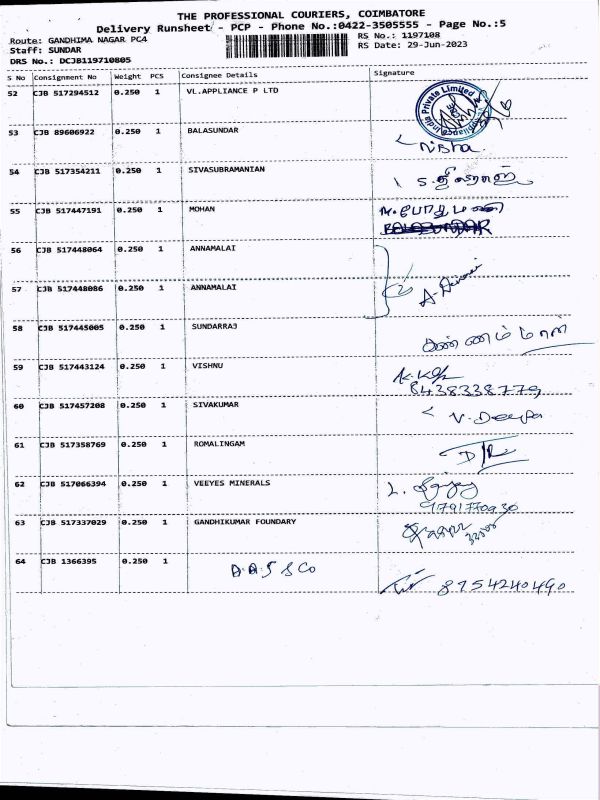 THE PROFESSIONAL COURIERS, COIMBATORE
Delivery Runsheet - PCP - Phone No.:0422-3505555 - Page No.:5
Route: GANDHIMA NAGAR PC4 RS No.: 1197108
Staff: SUNDAR RS Date: 29-Jun-2023
DRS No.: DCJB119710805
S No Consignment No Weight PCS Consignee Details Signature
52 CJB 517294512 0.250 1 VL.APPLIANCE P LTD
Private Limited
53 CJB 89606922 0.250 1 BALASUNDAR
Nisha.
54 CJB 517354211 0.250 1 SIVASUBRAMANIAN
55 CJB 517447191 0.250 1 MOHAN
56 CJB 517448064 0.250 1 ANNAMALAI
57 CJB 517448086 0.250 1 ANNAMALAI
58 CJB 517445005 0.250 1 SUNDARRAJ
59 CJB 517443124 0.250 1 VISHNU
8438338779
60 CJB 517457208 0.250 1 SIVAKUMAR V. Deepa
61 CJB 517358769 0.250 1 ROMALINGAM
62 CJB 517066394 0.250 1 VEEYES MINERALS
9791770930
63 CJB 517337029 0.250 1 GANDHIKUMAR FOUNDARY
64 CJB 1366395 0.250 1
8754240490